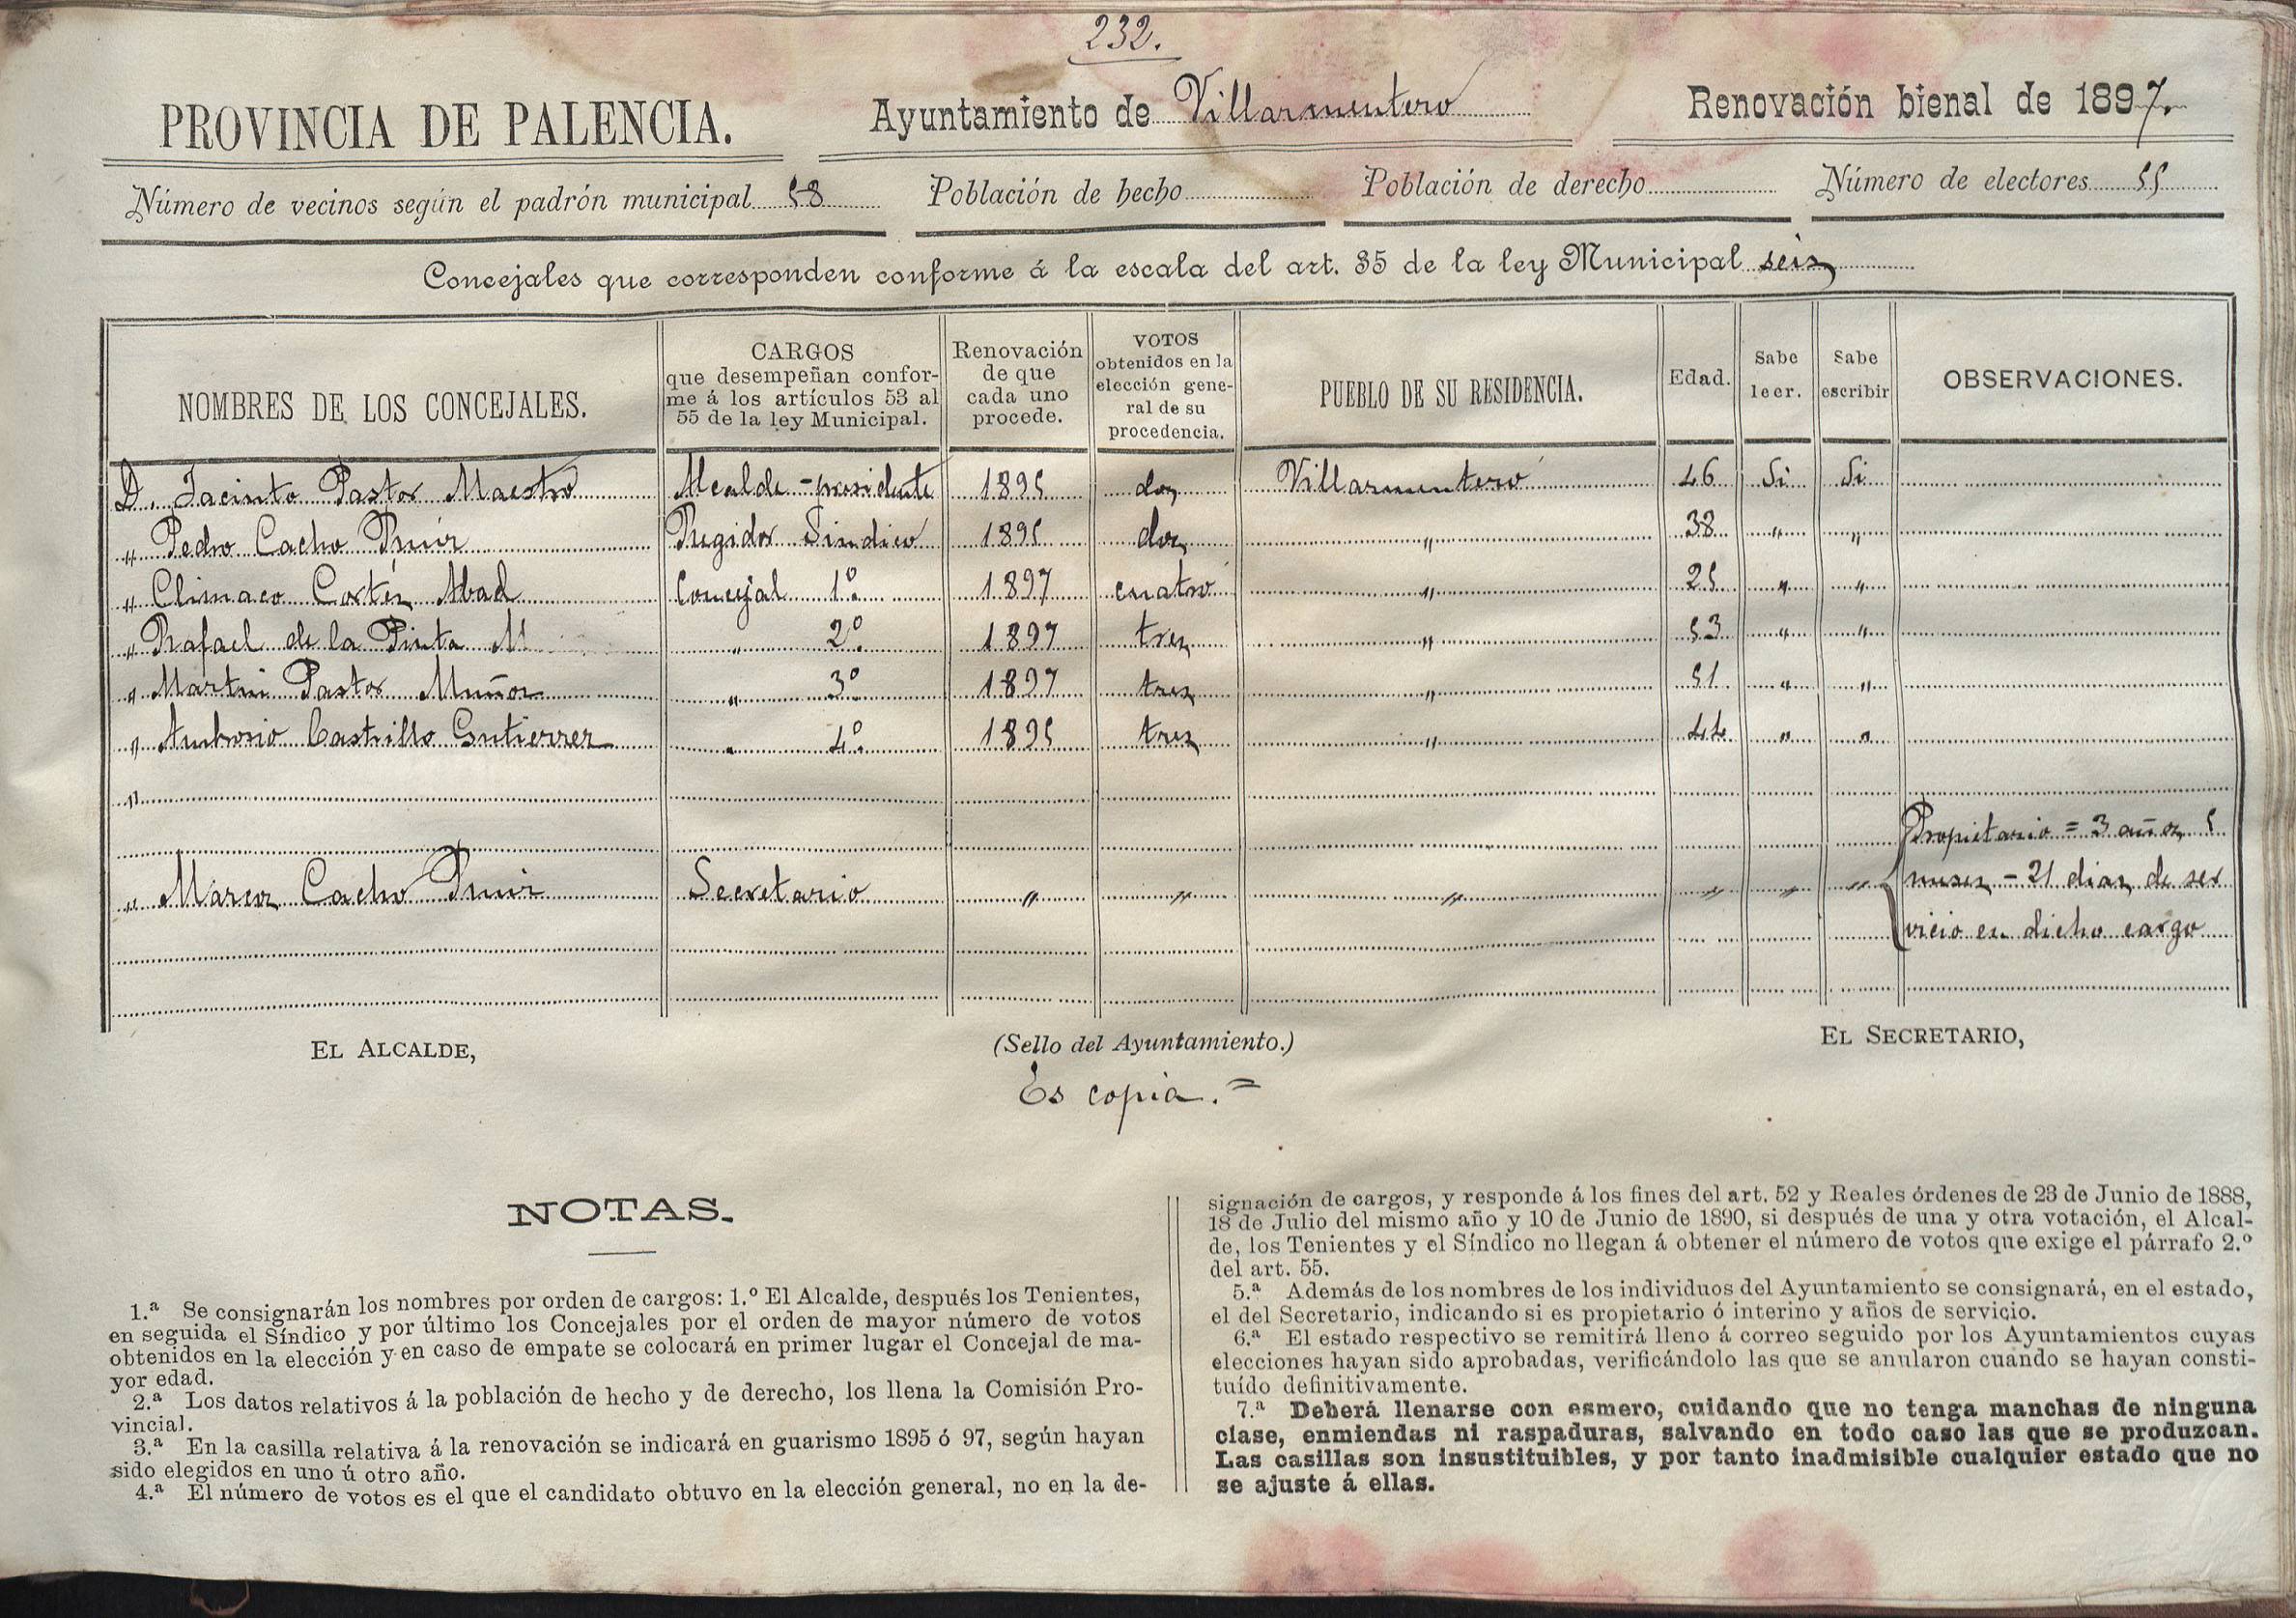 232.
PROVINCIA DE PALENCIA.
Ayuntamiento de Villarmentero
Renovación bienal de 1897.
Número de vecinos según el padrón municipal 58
Población de hecho
Población de derecho
Número de electores 55
Concejales que corresponden conforme á la escala del art. 35 de la ley Municipal seis
NOMBRES DE LOS CONCEJALES.
CARGOS
que desempeñan confor-
me á los artículos 53 al
55 de la ley Municipal.
Renovación
de que
cada uno
procede.
VOTOS
obtenidos en la
elección gene-
ral de su
procedencia.
PUEBLO DE SU RESIDENCIA.
Edad.
Sabe
leer.
Sabe
escribir
OBSERVACIONES.
D. Jacinto Pastor Maestro Alcalde-presidente 1895 dos Villarmentero 46 Si Si
" Pedro Cacho Ruiz Regidor Sindico 1895 dos " 38 " "
" Climaco Cortés Abad Concejal 1º 1897 cuatro " 25 " "
" Rafael de la Pinta M " 2º 1897 tres " 53 " "
" Martin Pastor Muñoz " 3º 1897 tres " 51 " "
" Ambrosio Castrillo Gutierrez " 4º 1895 tres " 44 " "
"
Propietario = 3 años 5
" Marcos Cacho Ruiz Secretario " " " " " " meses - 21 dias de ser
vicio en dicho cargo
EL ALCALDE,
(Sello del Ayuntamiento.)
EL SECRETARIO,
Es copia.=
NOTAS.
1.ª Se consignarán los nombres por orden de cargos: 1.º El Alcalde, después los Tenientes,
en seguida el Síndico y por último los Concejales por el orden de mayor número de votos
obtenidos en la elección y en caso de empate se colocará en primer lugar el Concejal de ma-
yor edad.
2.ª Los datos relativos á la población de hecho y de derecho, los llena la Comisión Pro-
vincial.
3.ª En la casilla relativa á la renovación se indicará en guarismo 1895 ó 97, según hayan
sido elegidos en uno ú otro año.
4.ª El número de votos es el que el candidato obtuvo en la elección general, no en la de-
signación de cargos, y responde á los fines del art. 52 y Reales órdenes de 23 de Junio de 1888,
18 de Julio del mismo año y 10 de Junio de 1890, si después de una y otra votación, el Alcal-
de, los Tenientes y el Síndico no llegan á obtener el número de votos que exige el párrafo 2.º
del art. 55.
5.ª Además de los nombres de los individuos del Ayuntamiento se consignará, en el estado,
el del Secretario, indicando si es propietario ó interino y años de servicio.
6.ª El estado respectivo se remitirá lleno á correo seguido por los Ayuntamientos cuyas
elecciones hayan sido aprobadas, verificándolo las que se anularon cuando se hayan consti-
tuído definitivamente.
7.ª Deberá llenarse con esmero, cuidando que no tenga manchas de ninguna
clase, enmiendas ni raspaduras, salvando en todo caso las que se produzcan.
Las casillas son insustituibles, y por tanto inadmisible cualquier estado que no
se ajuste á ellas.